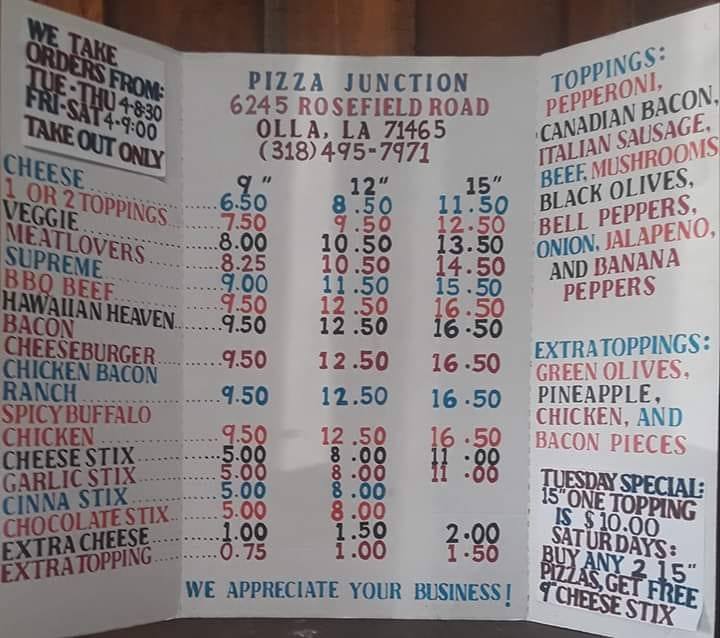 WE TAKE
ORDERS FROM:
TUE-THU 4-8:30
FRI-SAT 4-9:00
TAKE OUT ONLY
PIZZA JUNCTION
6245 ROSEFIELD ROAD
OLLA, LA 71465
(318) 495-7971
9" 12" 15"
CHEESE 6.50 8.50 11.50
1 OR 2 TOPPINGS 7.50 9.50 12.50
VEGGIE 8.00 10.50 13.50
MEATLOVERS 8.25 10.50 14.50
SUPREME 9.00 11.50 15.50
BBQ BEEF 9.50 12.50 16.50
HAWAIIAN HEAVEN 9.50 12.50 16.50
BACON
CHEESEBURGER 9.50 12.50 16.50
CHICKEN BACON
RANCH 9.50 12.50 16.50
SPICY BUFFALO
CHICKEN 9.50 12.50 16.50
CHEESE STIX 5.00 8.00 11.00
GARLIC STIX 5.00 8.00 11.00
CINNA STIX 5.00 8.00
CHOCOLATE STIX 5.00 8.00
EXTRA CHEESE 1.00 1.50 2.00
EXTRA TOPPING 0.75 1.00 1.50
WE APPRECIATE YOUR BUSINESS!
TOPPINGS:
PEPPERONI,
CANADIAN BACON,
ITALIAN SAUSAGE,
BEEF, MUSHROOMS
BLACK OLIVES,
BELL PEPPERS,
ONION, JALAPENO,
AND BANANA
PEPPERS
EXTRA TOPPINGS:
GREEN OLIVES,
PINEAPPLE,
CHICKEN, AND
BACON PIECES
TUESDAY SPECIAL:
15" ONE TOPPING
IS $10.00
SATURDAYS:
BUY ANY 2 15"
PIZZAS, GET FREE
9" CHEESE STIX